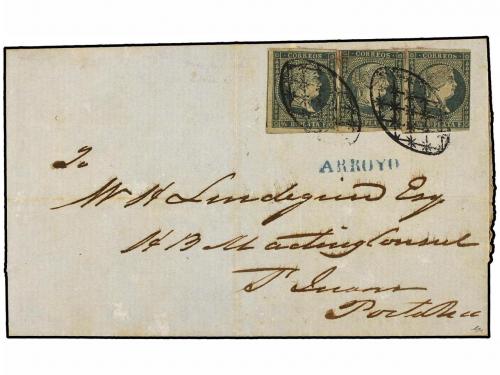 CORREOS CORREOS CORREOS
ARROYO
To
W H Lindegren Esq
H B M acting Consul
St Juans
Porto Rico